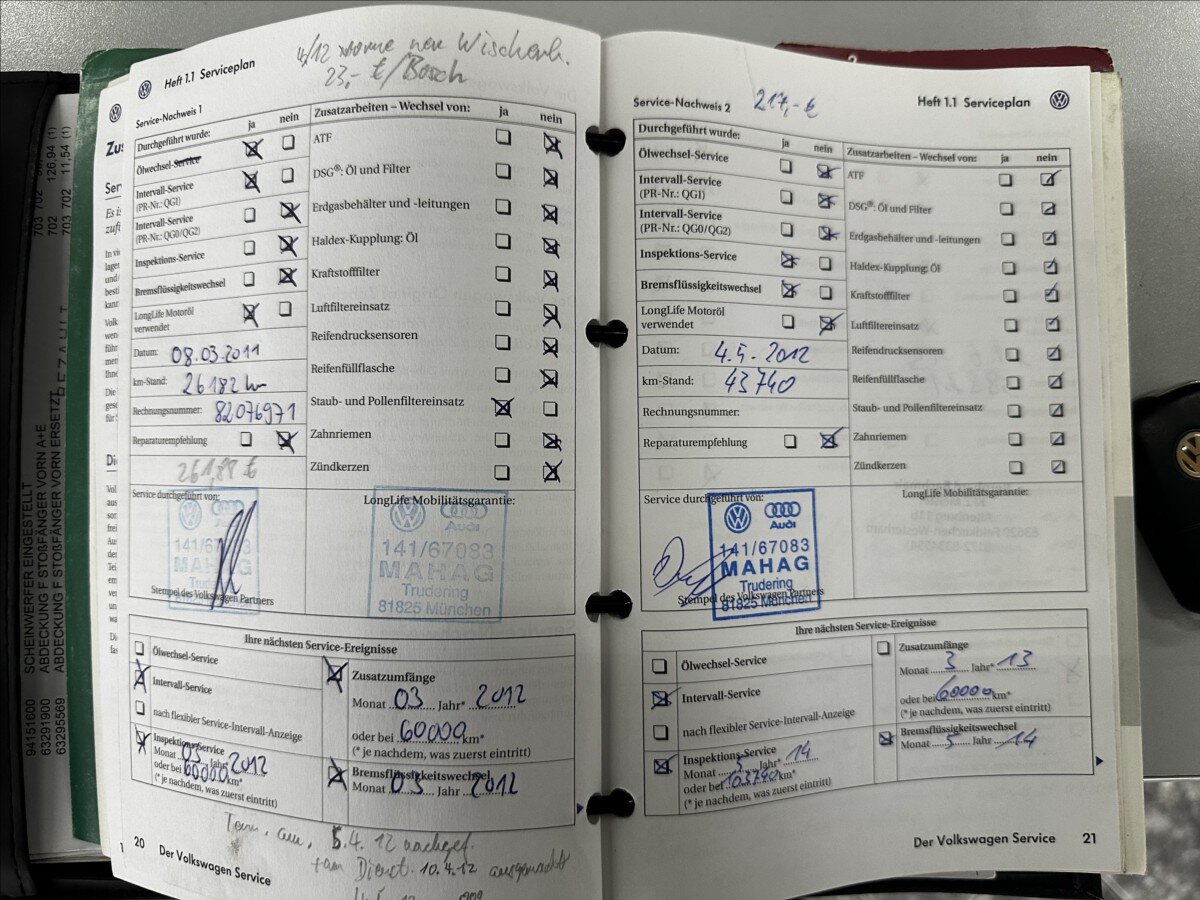 4/12 vorne neu Wischerbl.
23,- €/Bosch
Heft 1.1 Serviceplan
Service-Nachweis 1
Durchgeführt wurde: ja nein
Ölwechsel-Service
Intervall-Service
(PR-Nr.: QG1)
Intervall-Service
(PR-Nr.: QG0/QG2)
Inspektions-Service
Bremsflüssigkeitswechsel
LongLife Motoröl
verwendet
Datum: 08.03.2011
km-Stand: 26182 km
Rechnungsnummer: 82076971
Reparaturempfehlung
261,88 €
Zusatzarbeiten – Wechsel von: ja nein
ATF
DSG®: Öl und Filter
Erdgasbehälter und -leitungen
Haldex-Kupplung: Öl
Kraftstofffilter
Luftfiltereinsatz
Reifendrucksensoren
Reifenfüllflasche
Staub- und Pollenfiltereinsatz
Zahnriemen
Zündkerzen
Service durchgeführt von:
Audi
141/67083
MAHAG
Trudering
Stempel des Volkswagen Partners
81825 München
LongLife Mobilitätsgarantie:
Audi
141/67083
MAHAG
Trudering
81825 München
Ihre nächsten Service-Ereignisse
Ölwechsel-Service
Intervall-Service
nach flexibler Service-Intervall-Anzeige
Inspektions-Service
Monat 03 Jahr* 2012
oder bei 60000 km*
(* je nachdem, was zuerst eintritt)
Zusatzumfänge
Monat 03 Jahr* 2012
oder bei 60000 km*
(* je nachdem, was zuerst eintritt)
Bremsflüssigkeitswechsel
Monat 03 Jahr 2012
20 Der Volkswagen Service
5.4.12
Dienst. 10.4.12 ausgemacht
Service-Nachweis 2
217,- €
Heft 1.1 Serviceplan
Durchgeführt wurde: ja nein
Ölwechsel-Service
Intervall-Service
(PR-Nr.: QG1)
Intervall-Service
(PR-Nr.: QG0/QG2)
Inspektions-Service
Bremsflüssigkeitswechsel
LongLife Motoröl
verwendet
Datum: 4.5.2012
km-Stand: 43740
Rechnungsnummer:
Reparaturempfehlung
Zusatzarbeiten – Wechsel von: ja nein
ATF
DSG®: Öl und Filter
Erdgasbehälter und -leitungen
Haldex-Kupplung: Öl
Kraftstofffilter
Luftfiltereinsatz
Reifendrucksensoren
Reifenfüllflasche
Staub- und Pollenfiltereinsatz
Zahnriemen
Zündkerzen
Service durchgeführt von:
Audi
141/67083
MAHAG
Trudering
Stempel des Volkswagen Partners
81825 München
LongLife Mobilitätsgarantie:
Ihre nächsten Service-Ereignisse
Ölwechsel-Service
Intervall-Service
nach flexibler Service-Intervall-Anzeige
Inspektions-Service
Monat 5 Jahr* 14
oder bei 103740 km*
(* je nachdem, was zuerst eintritt)
Zusatzumfänge
Monat 3 Jahr* 13
oder bei 60000 km*
(* je nachdem, was zuerst eintritt)
Bremsflüssigkeitswechsel
Monat 5 Jahr 14
Der Volkswagen Service 21
94151600 SCHEINWERFER EINGESTELLT
63291900 ABDECKUNG F STOßFÄNGER VORN A+E
63295569 ABDECKUNG F STOßFÄNGER VORN ERSETZT
703 702
702 126,94 (1)
703 702 11,54 (1)